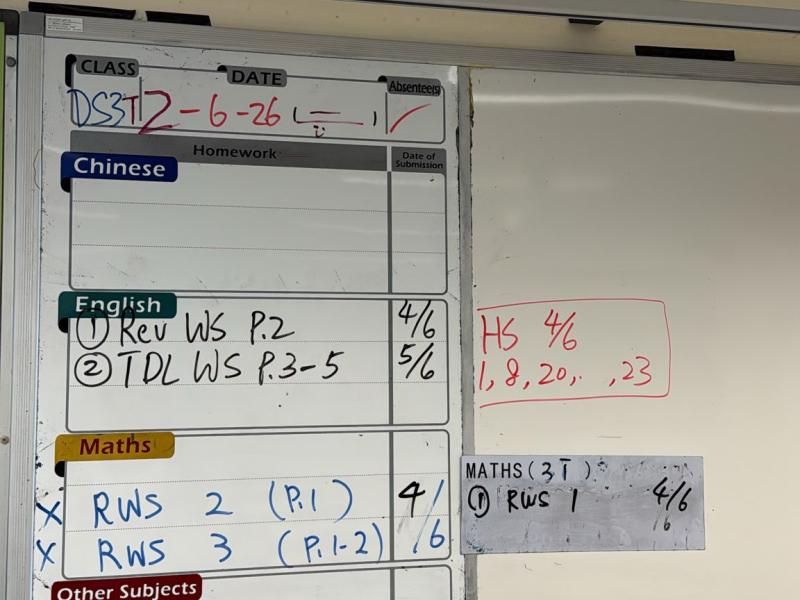 CLASS DATE Absentee(s)
DS3T 2-6-26 (二)
Homework Date of Submission
Chinese
English
① Rev WS P.2 4/6
② TDL WS P.3-5 5/6
Maths
× RWS 2 (P.1) 4/
× RWS 3 (P.1-2) /6
Other Subjects
HS 4/6
1, 8, 20, , 23
MATHS(3T)
① RWS 1 4/6